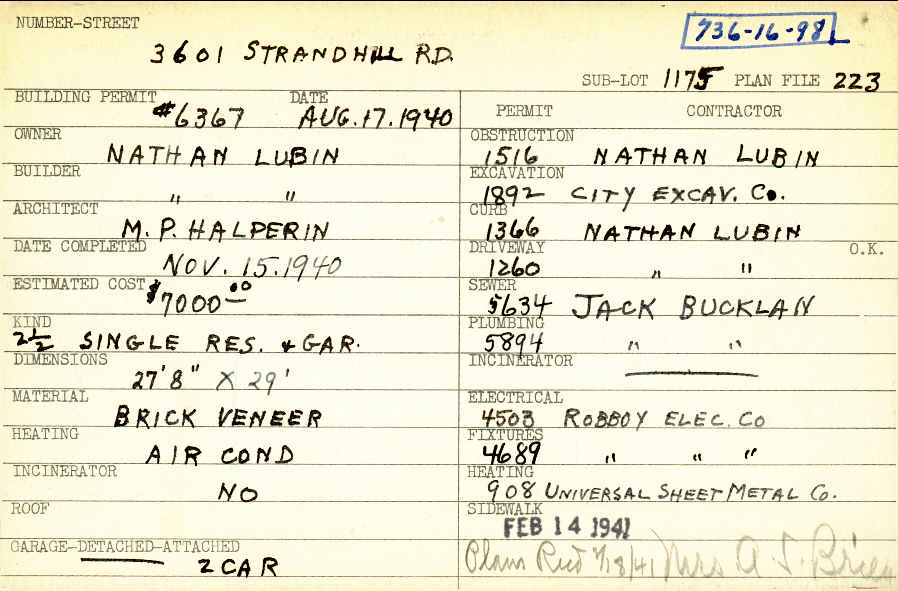 NUMBER-STREET
736-16-98
3601 STRANDHILL RD.
SUB-LOT 1175 PLAN FILE 223
BUILDING PERMIT DATE
#6367 AUG. 17. 1940
OWNER
NATHAN LUBIN
BUILDER
" "
ARCHITECT
M. P. HALPERIN
DATE COMPLETED
NOV. 15. 1940
ESTIMATED COST
$7000.00
KIND
2 1/2 SINGLE RES. & GAR.
DIMENSIONS
27'8" X 29'
MATERIAL
BRICK VENEER
HEATING
AIR COND
INCINERATOR
NO
ROOF
GARAGE-DETACHED-ATTACHED
2 CAR
PERMIT CONTRACTOR
OBSTRUCTION
1516 NATHAN LUBIN
EXCAVATION
1892 CITY EXCAV. Co.
CURB
1366 NATHAN LUBIN
DRIVEWAY O.K.
1260 " "
SEWER
5634 JACK BUCKLAN
PLUMBING
5894 " "
INCINERATOR
ELECTRICAL
4503 ROBBOY ELEC. Co
FIXTURES
4689 " " "
HEATING
908 UNIVERSAL SHEET METAL Co.
SIDEWALK
FEB 14 1941
Plans Recd 7/18/41 Mrs A